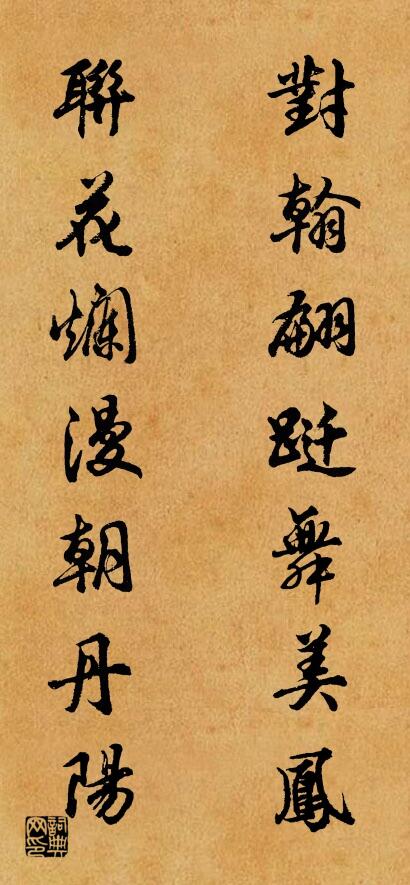 對翰翩跹舞美鳳
聯花爛漫朝丹陽
詞典
网印